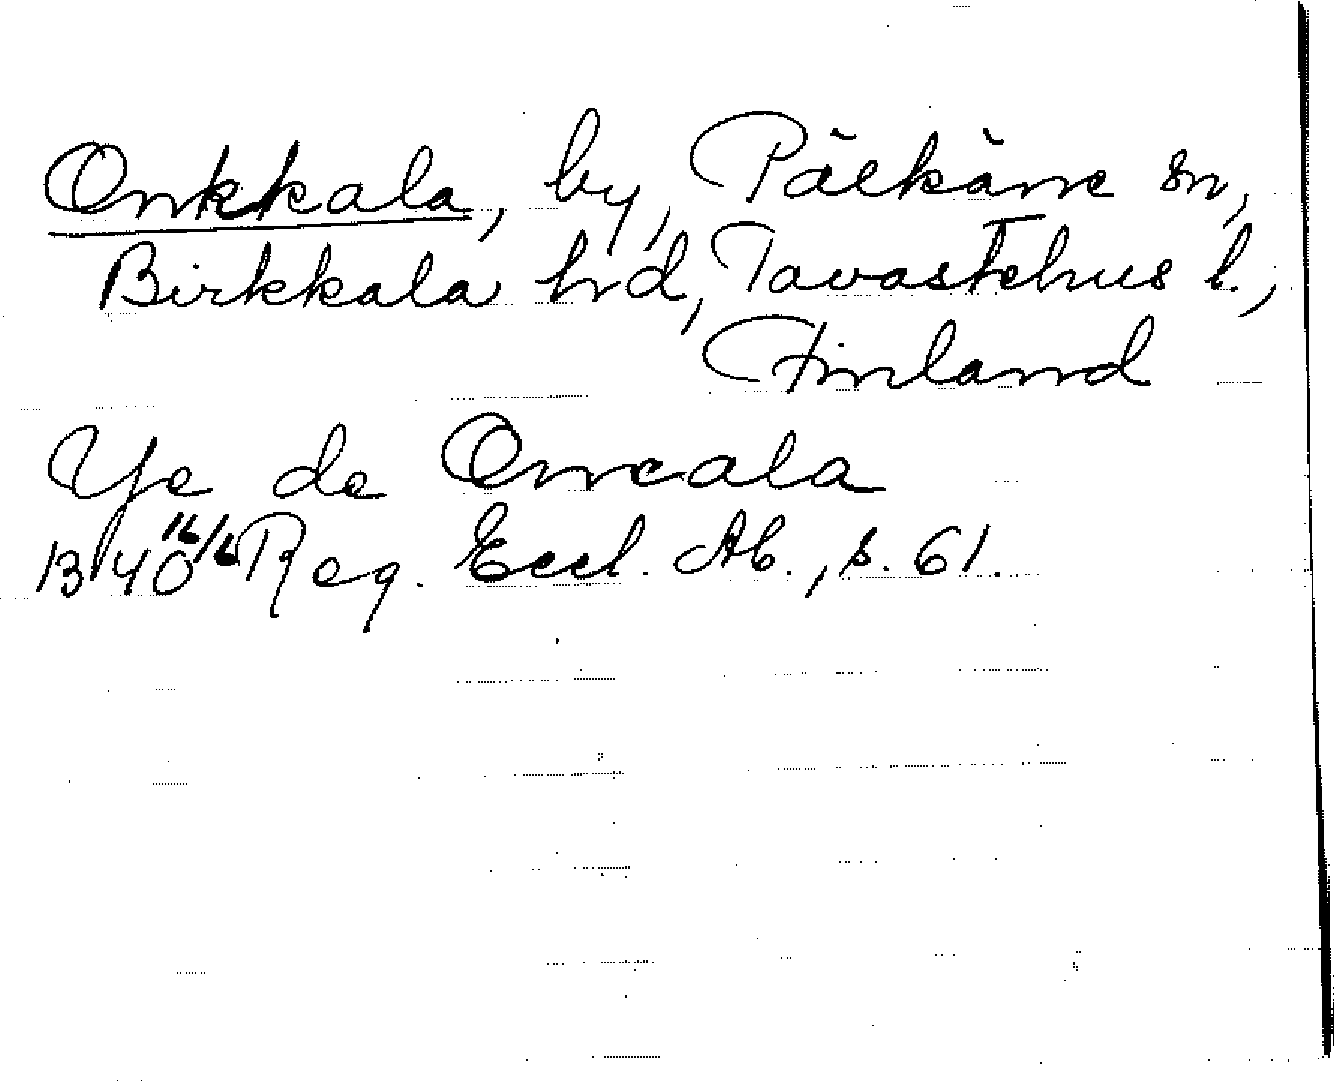 Onkkala, by, Pälkäne sn,
Birkkala hrd, Tavastehus l.,
Finland
Ye de Onncala
1340 16/6 Reg. Eccl. Ab., s. 61.